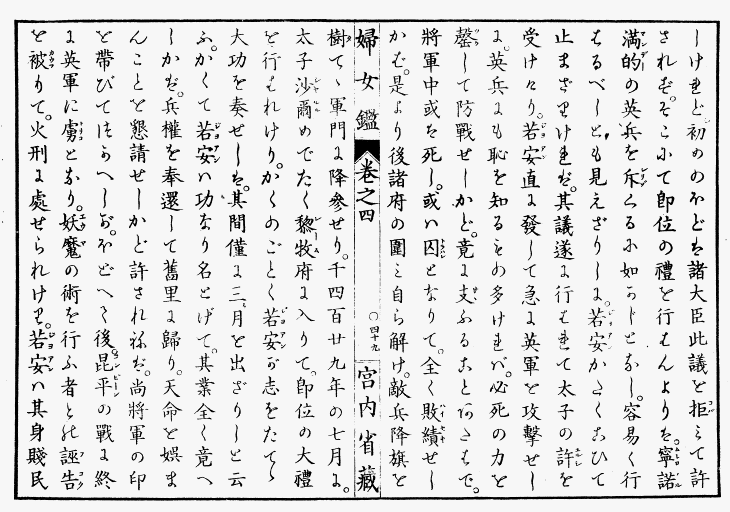 しけれど初めのほどは諸大臣此議を拒みて許
されず。そこにて即位の禮を行はんよりは。寧諾
滿的の英兵を斥くるに如かじとなし。容易く行
はるべしとも見えざりしに。若安かたくこひて
止まざりければ。其議遂に行はれて太子の許を
受けたり。若安直に發して急に英軍を攻撃せし
に。英兵にも恥を知るもの多ければ。必死の力を
罄して防戰せしかど。竟に支ふることあたはで。
將軍中或は死し。或は囚となりて。全く敗績せし
かば。是より後諸府の圍ミ自ら解け。敵兵降旗を
婦女鑑 卷之四 〇四十九 宮内省藏
樹てゝ軍門に降參せり。千四百廿九年の七月に。
太子沙爾めでたく黎牧府に入りて。即位の大禮
を行はれけり。かくのごとく若安が志をたてゝ
大功を奏せしは。其間僅に三月を出ざりしと云
ふ。かくて若安は功なり名とげて。其業全く竟へ
しかば。兵權を奉還して舊里に歸り。天命を娯ま
んことを懇請せしかど許されねば。尚將軍の印
を帶びてつかへしが。ほどへて後昆平の戰に終
に英軍に虜となり。妖魔の術を行ふ者との誣告
を被りて。火刑に處せられけり。若安は其身賤民